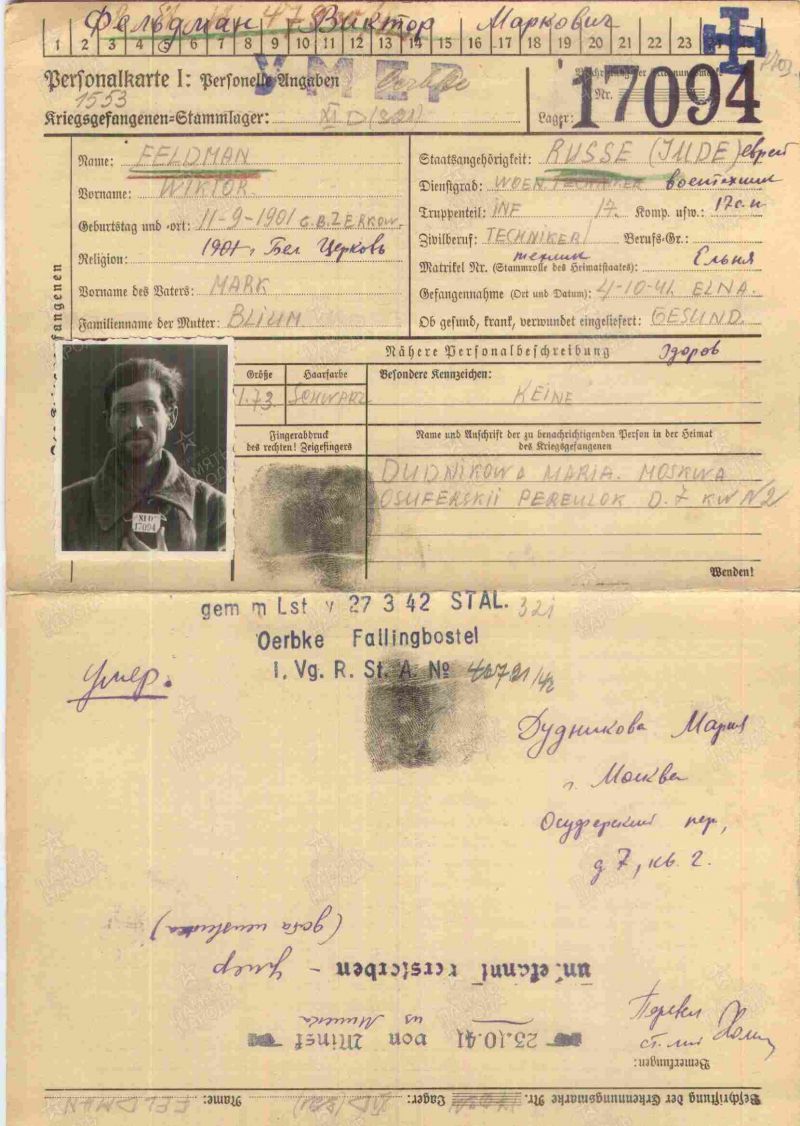 Фельдман Виктор Маркович
1 2 3 4 5 6 7 8 9 10 11 12 13 14 15 16 17 18 19 20 21 22 23
Personalkarte I: Personelle Angaben
УМЕР
1553
Kriegsgefangenen-Stammlager: XI D (321)
Nr. 17094
Lager:
Name: FELDMAN
Vorname: WIKTOR
Geburtstag und -ort: 11-9-1901 G.B.ZERKOW.
Religion: 1901 г. Бел Церковь
Vorname des Vaters: MARK
Familienname der Mutter: BLIUM
Staatsangehörigkeit: RUSSE (JUDE) еврей
Dienstgrad: WOEN.TECHNIKER воентехник
Truppenteil: INF 17. Komp. usw.: 17 с.п
Zivilberuf: TECHNIKER Berufs-Gr.:
техник
Matrikel Nr. (Stammrolle des Heimatstaates): Ельня
Gefangennahme (Ort und Datum): 4-10-41. ELNA.
Ob gesund, krank, verwundet eingeliefert: GESUND.
Nähere Personalbeschreibung здоров
Größe
1.73
Haarfarbe
SCHWARZ
Besondere Kennzeichen:
KEINE
Fingerabdruck
des rechten! Zeigefingers
Name und Anschrift der zu benachrichtigenden Person in der Heimat
des Kriegsgefangenen
DUDNIKOWA MARIA. MOSKWA
OSUFERSKII PEREULOK D.7 KW N2
XI D
17094
Wenden!
gem m Lst v 27 3 42 STAL. 321
Oerbke Fallingbostel
I. Vg. R. St. A. № 40721/42
Умер.
Дудникова Мария
г. Москва
Осуферский пер,
д 7, кв. 2.
(дата неизвестна)
unbekannt verstorben - умер
из Минска
23.10.41 von Minsk
Перевел
ст. л-т
Bemerkungen:
Beschriftung der Erkennungsmarke Nr. Lager: XI D (321) Name: FELDMAN